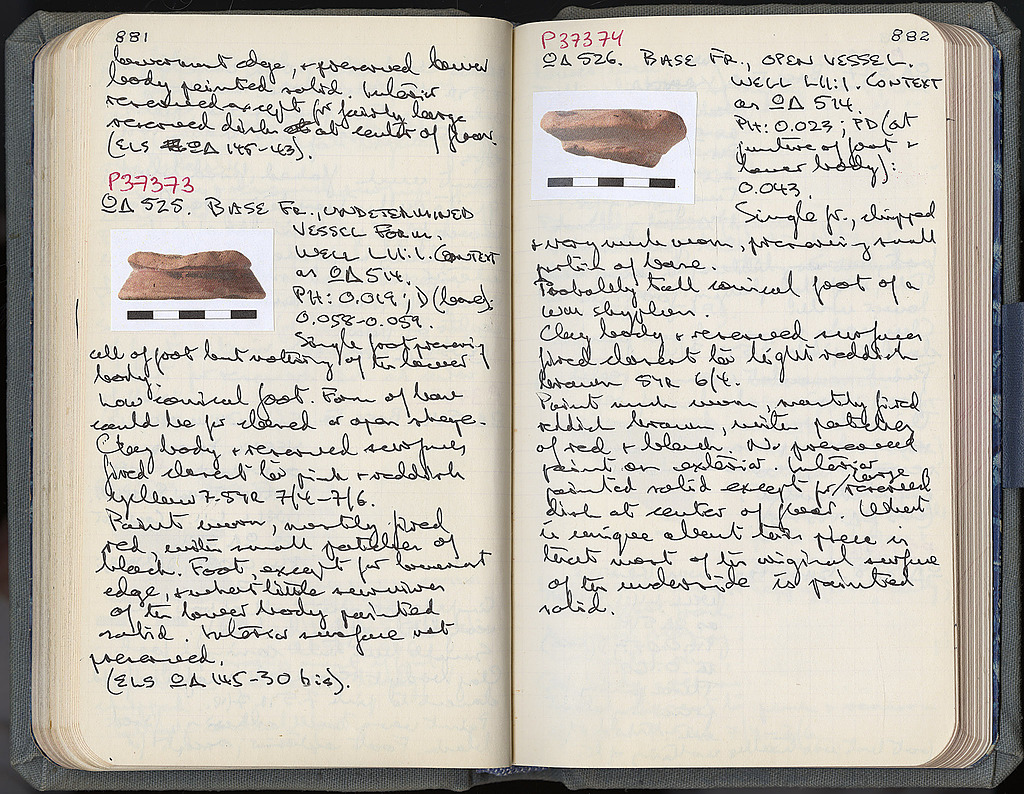 881
lowermost edge, + preserved lower
body painted solid. Interior
reserved except for fairly large
reserved disk at center of floor.
(ELS ΟΔ 145-43).
P37373
ΟΔ 525. BASE FR., UNDETERMINED
VESSEL FORM.
WELL L11:1. CONTEXT
as ΟΔ 514.
PH: 0.019; D (base):
0.058-0.059.
Single foot preserving
all of foot but nothing of the lower
body.
Low conical foot. Form of base
could be for closed or open shape.
Clay body + reserved surfaces
fired closest to pink + reddish
yellow 7.5YR 7/4-7/6.
Paint worn, mostly fired
red, with small patches of
black. Foot, except for lowermost
edge, + what little survives
of the lower body painted
solid. Interior surface not
preserved.
(ELS ΟΔ 145-30 bis).
882
P37374
ΟΔ 526. BASE FR., OPEN VESSEL.
WELL L11:1. CONTEXT
as ΟΔ 514.
PH: 0.023; PD (at
juncture of foot +
lower body):
0.043.
Single fr., chipped
+ very much worn, preserving small
portion of base.
Probably tall conical foot of a
cup skyphos.
Clay body + reserved surfaces
fired closest to light reddish
brown 5YR 6/4.
Paint much worn, mostly fired
reddish brown, with patches
of red + black. No preserved
paint on exterior. Interior
painted solid except for large reserved
disk at center of floor. What
is unique about this piece is
that most of the original surface
of the underside is painted
solid.